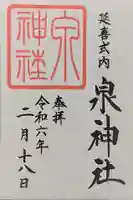 延喜式内
泉神社
奉拝
令和六年
二月十八日
泉
神社